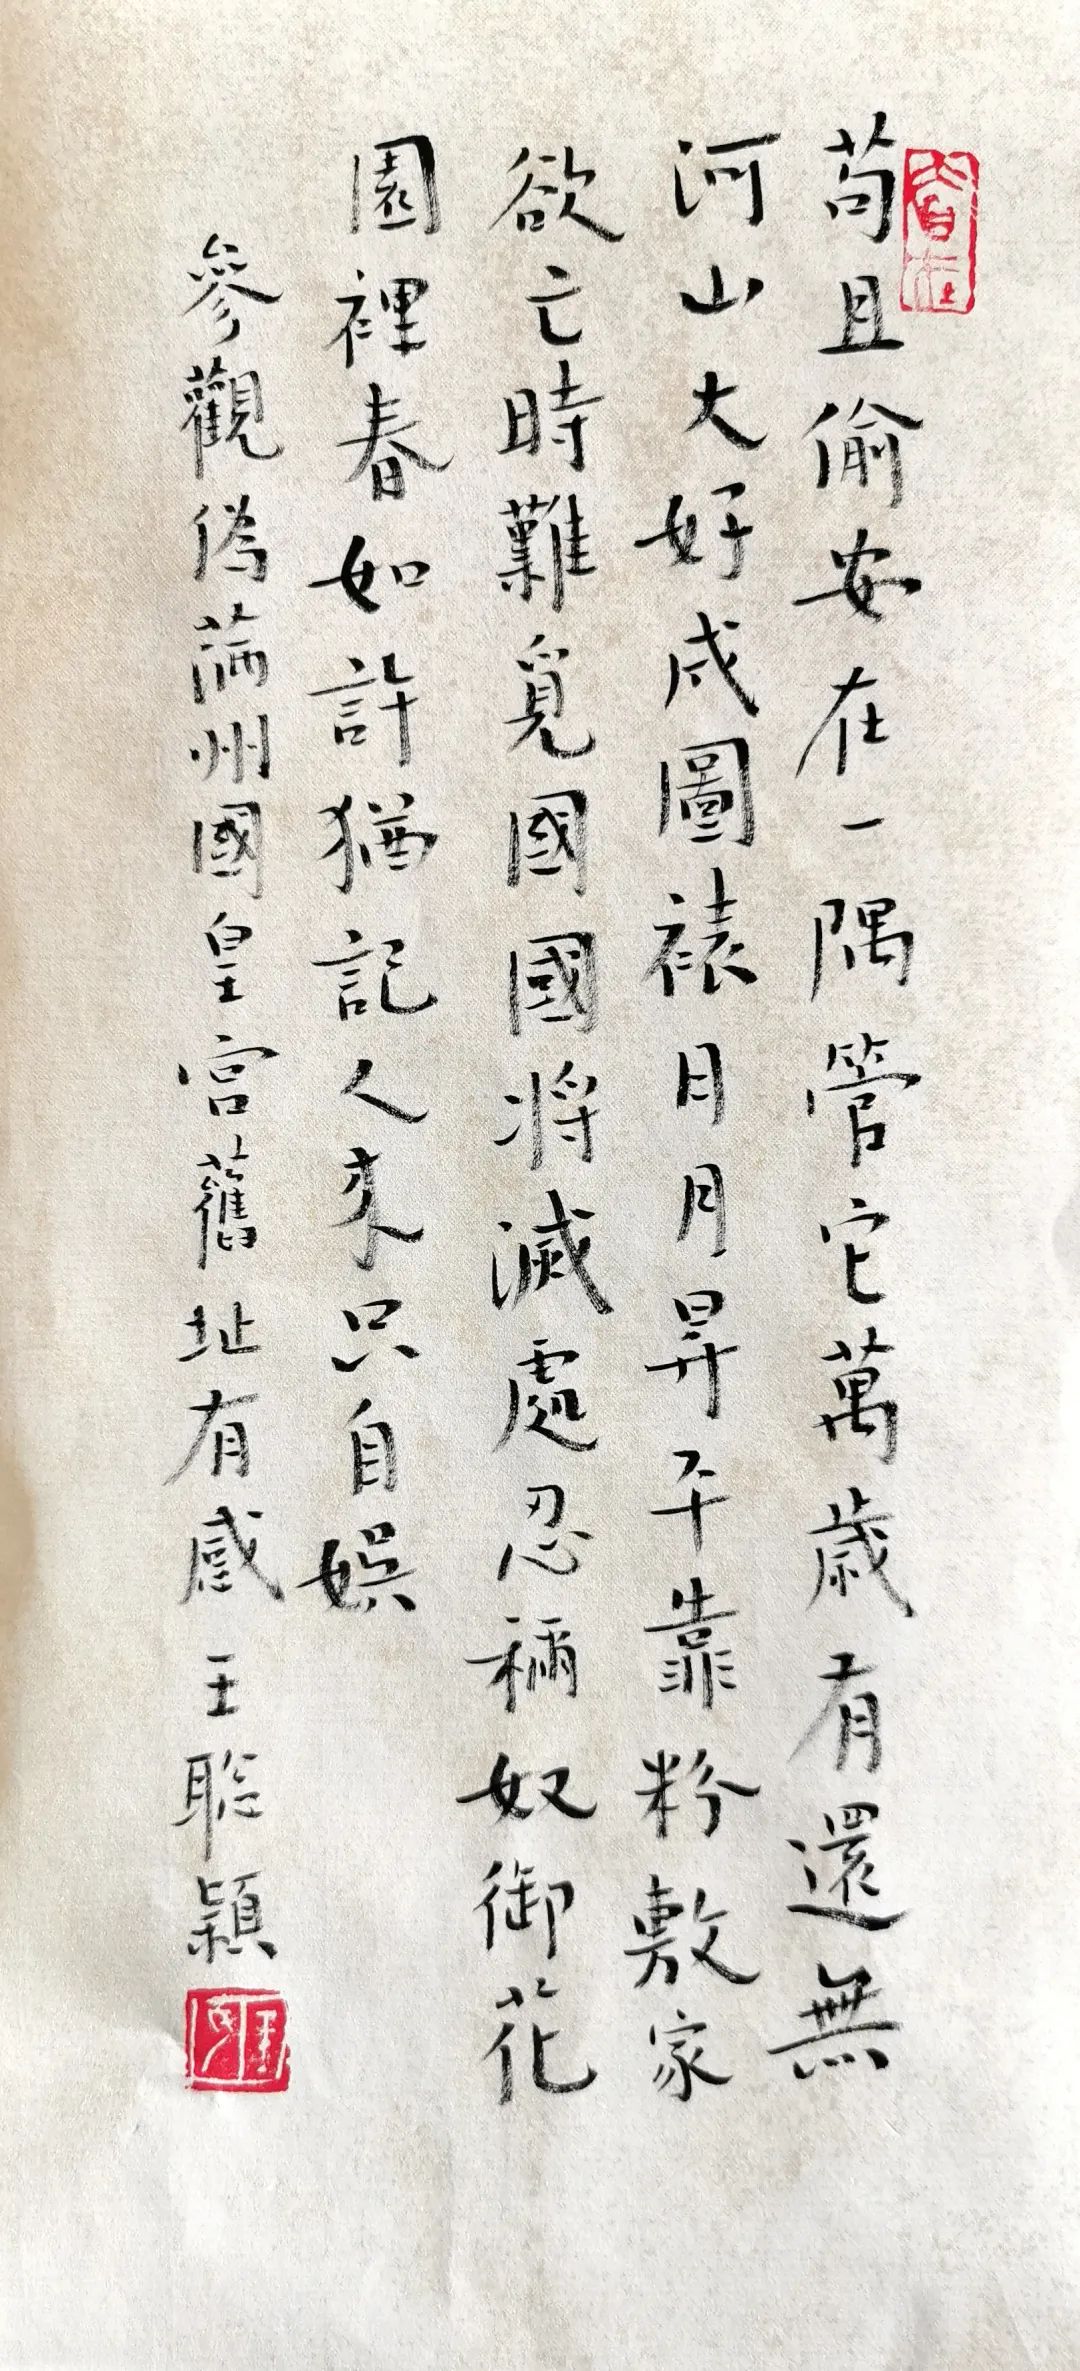 苟且偷安在一隅管它萬歲有還無
河山大好成圖裱日月昇平靠粉敷家
欲亡時難覓國國將滅處忍稱奴御花
園裡春如許猶記人來只自娛
參觀偽滿州國皇宮舊址有感 王聰穎